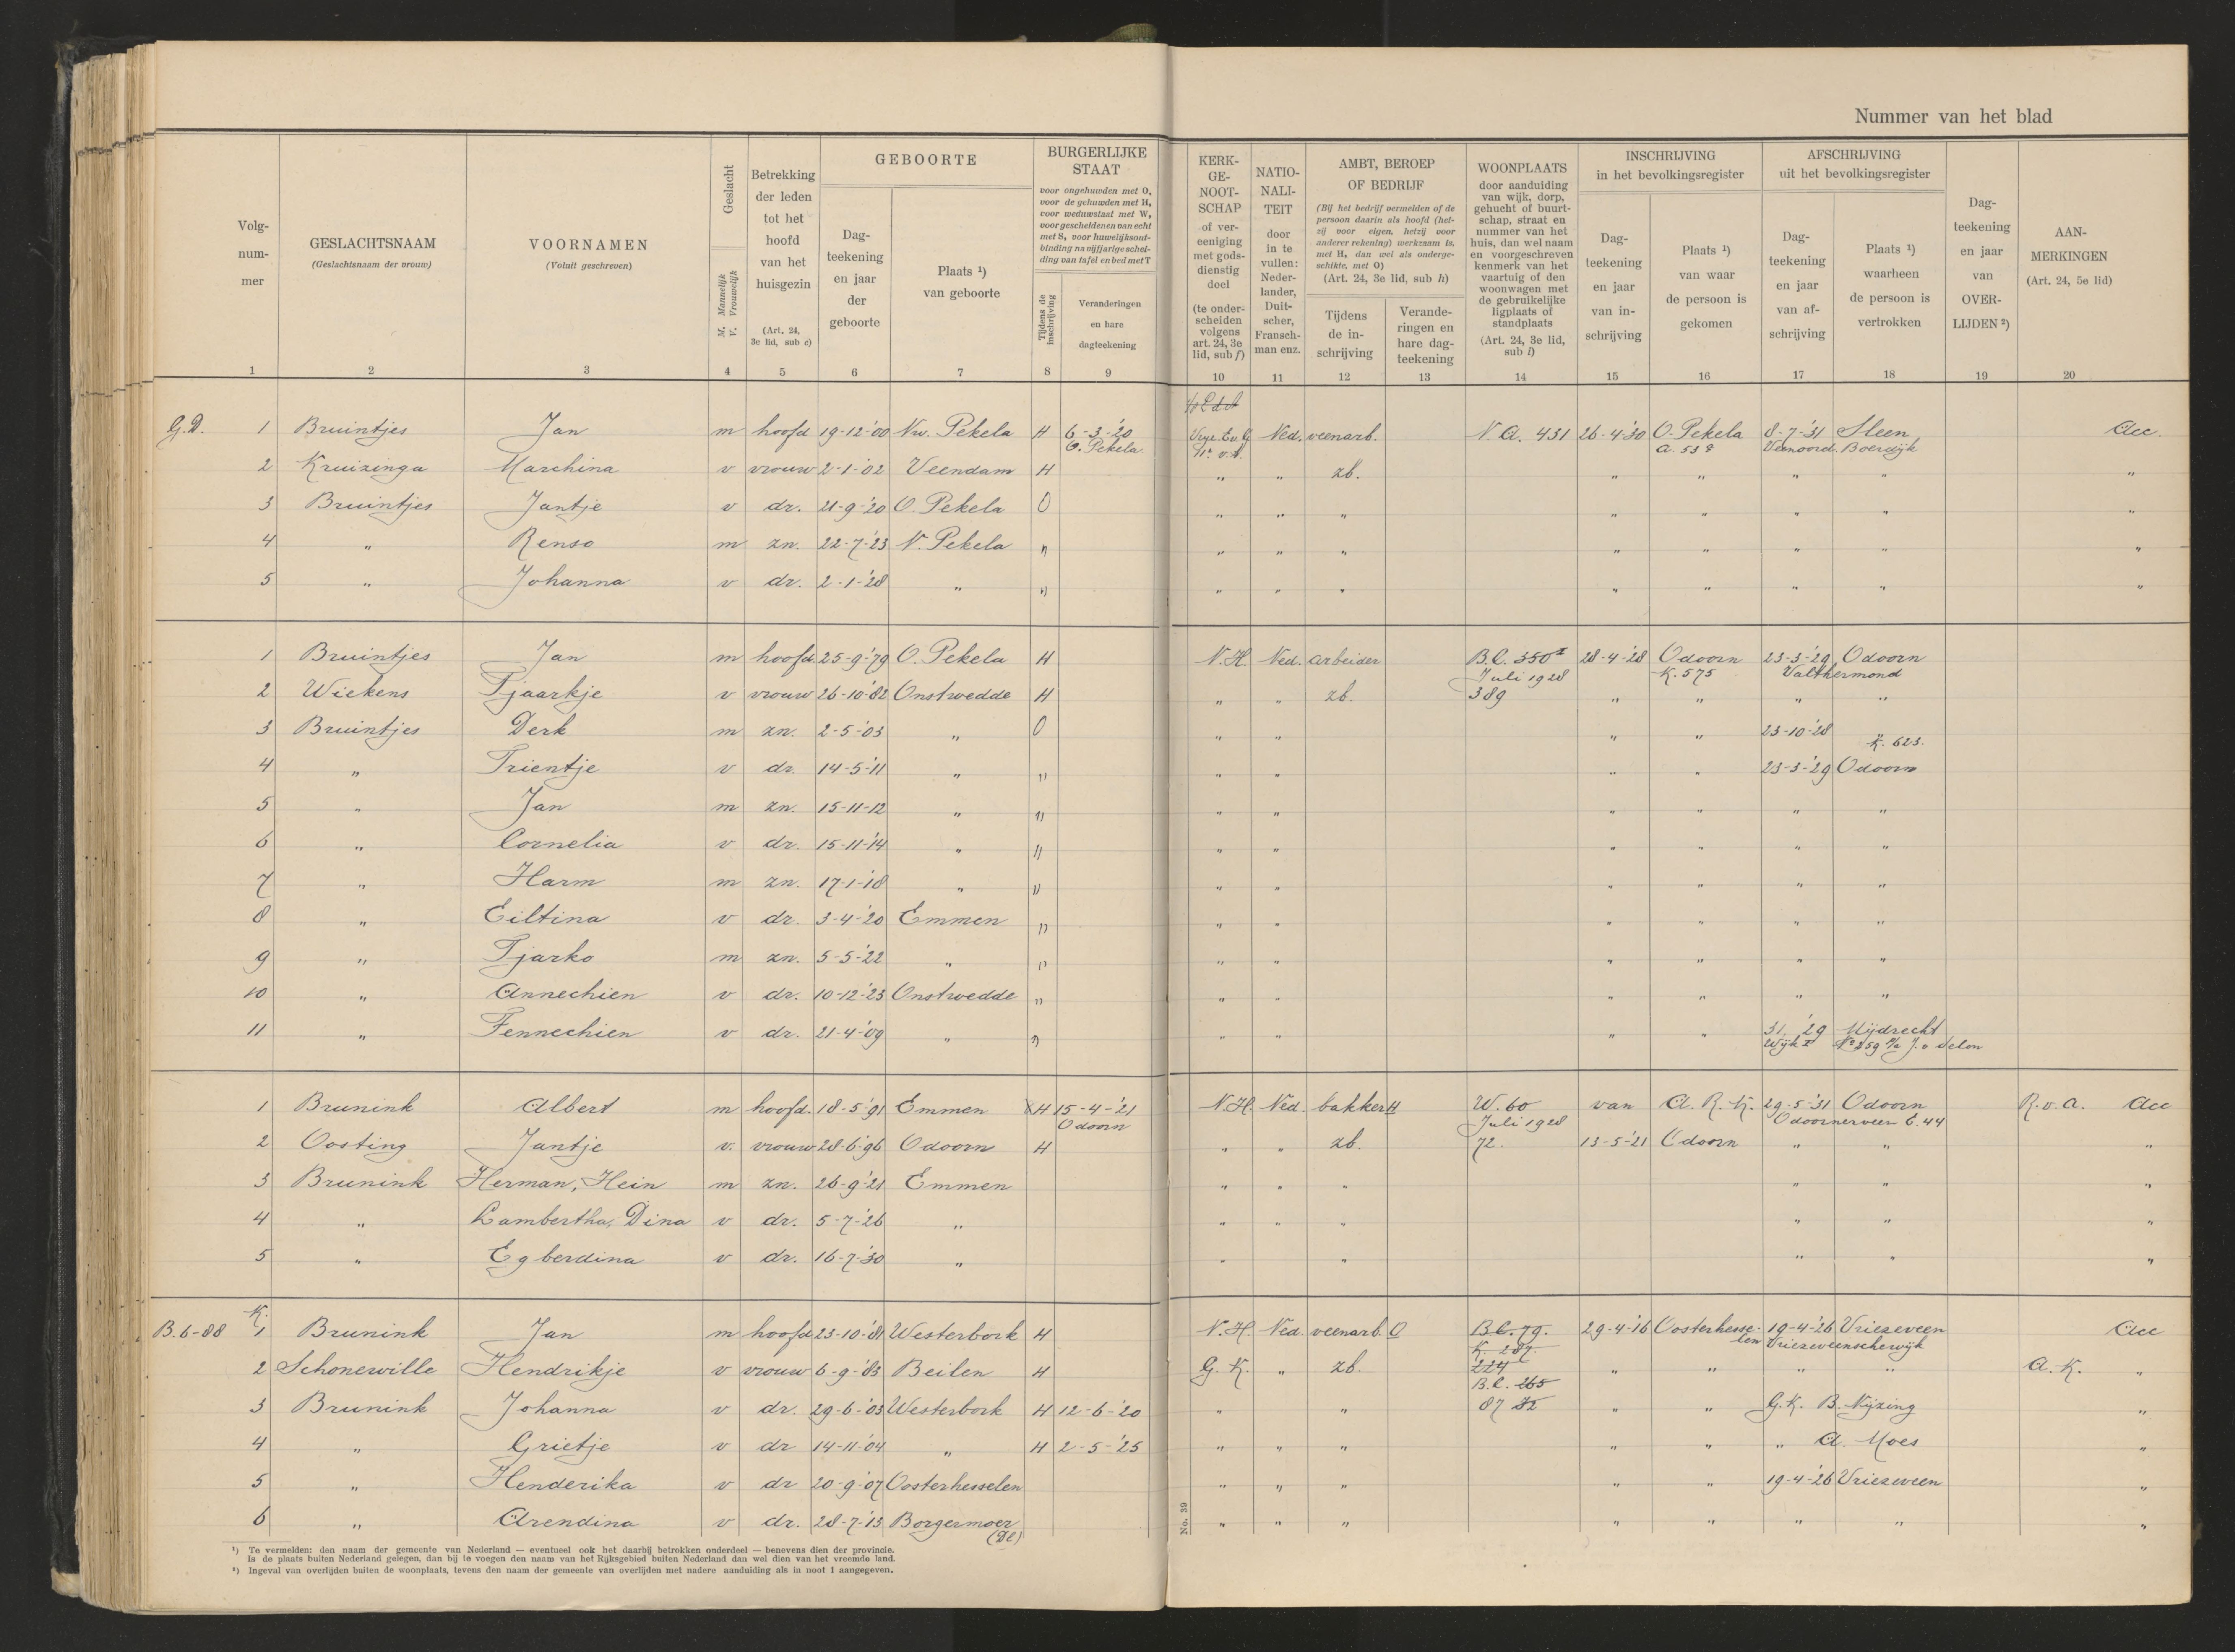 Nummer van het blad
Volg-nummer
GESLACHTSNAAM
(Geslachtsnaam der vrouw)
VOORNAMEN
(Voluit geschreven)
Geslacht
M. Mannelijk
V. Vrouwelijk
Betrekking der leden tot het hoofd van het huisgezin
(Art. 24, 3e lid, sub c)
GEBOORTE
Dag-teekening en jaar der geboorte
Plaats ¹) van geboorte
BURGERLIJKE STAAT
voor ongehuwden met O,
voor de gehuwden met H,
voor weduwstaat met W,
voor gescheidenen van echt
met S, voor huwelijksont-
binding na vijfjarige schei-
ding van tafel en bed met T
Tijdens de inschrijving
Veranderingen en hare dagteekening
KERK-GE-NOOT-SCHAP
of ver-eeniging met gods-dienstig doel
(te onder-scheiden volgens art. 24, 3e lid, sub f)
NATIO-NALI-TEIT
door in te vullen: Neder-lander, Duit-scher, Fransch-man enz.
AMBT, BEROEP OF BEDRIJF
(Bij het bedrijf vermelden of de
persoon daarin als hoofd (het-
zij voor eigen, hetzij voor
anderer rekening) werkzaam is,
met H, dan wel als onderge-
schikte, met O)
(Art. 24, 3e lid, sub h)
Tijdens de in-schrijving
Verande-ringen en hare dag-teekening
WOONPLAATS
door aanduiding
van wijk, dorp,
gehucht of buurt-
schap, straat en
nummer van het
huis, dan wel naam
en voorgeschreven
kenmerk van het
vaartuig of den
woonwagen met
de gebruikelijke
ligplaats of
standplaats
(Art. 24, 3e lid, sub i)
INSCHRIJVING
in het bevolkingsregister
Dag-teekening en jaar van in-schrijving
Plaats ¹) van waar de persoon is gekomen
AFSCHRIJVING
uit het bevolkingsregister
Dag-teekening en jaar van af-schrijving
Plaats ¹) waarheen de persoon is vertrokken
Dag-teekening en jaar van OVER-LIJDEN ²)
AAN-MERKINGEN
(Art. 24, 5e lid)
1 2 3 4 5 6 7 8 9 10 11 12 13 14 15 16 17 18 19 20
G.D. 1 Bruintjes Jan m hoofd 19-12-'00 Nw. Pekela H 6-3-'20 Ned. veenarb. N.A. 431 26-4-'30 O. Pekela 8-7-'31 Sleen Acc.
O. Pekela Veenoord. Boerdijk
2 Kruizinga Marchina v vrouw 2-1-'02 Veendam H " " zb. " " " " "
3 Bruintjes Jantje v dr. 21-9-'20 O. Pekela O " " " " " " " "
4 " Renso m zn. 22-7-'23 N. Pekela " " " " " " " " "
5 " Johanna v dr. 2-1-'28 " " " " " " " " " "
1 Bruintjes Jan m hoofd. 25-9-'79 O. Pekela H N.H. Ned. arbeider B.C. 350 I 28-4-'28 Odoorn 23-3-'29 Odoorn
Juli 1928 K. 575 Valthermond
2 Wiekens Tjaarkje v vrouw 26-10-'82 Onstwedde H " " zb. 389 " " " "
3 Bruintjes Derk m zn. 2-5-'03 " O " " " " 23-10-'28 K. 623.
4 " Trientje v dr. 14-5-'11 " " " " " " 23-3-'29 Odoorn
5 " Jan m zn. 15-11-12 " " " " " " " "
6 " Cornelia v dr. 15-11-'14 " " " " " " " "
7 " Harm m zn. 17-1-'18 " " " " " " " "
8 " Eiltina v dr. 3-4-'20 Emmen " " " " " " "
9 " Tjarko m zn. 5-5-'22 " " " " " " " "
10 " Annechien v dr. 10-12-'23 Onstwedde " " " " " " "
11 " Fennechien v dr. 21-4-'09 " " " " " " '29 Mijdrecht
Wijk
1 Brunink Albert m hoofd. 18-5-'91 Emmen H 15-4-'21 N.H. Ned. bakker H W. 60 van A.R.K. 29-5-'31 Odoorn R.v.A. Acc
Odoorn Juli 1928 Odoornerveen E. 44
2 Oosting Jantje v. vrouw 28-6-'96 Odoorn H " " zb. 72. 13-5-'21 Odoorn " " "
3 Brunink Herman, Hein m zn. 26-9-'21 Emmen " " " " " "
4 " Lambertha, Dina v dr. 5-7-'26 " " " " " " "
5 " Egberdina v dr. 16-7-'30 " " " " " "
B. 6-88 K. 1 Brunink Jan m hoofd 23-10-'81 Westerbork H N.H. Ned. veenarb. O B.C. 79. 29-4-'16 Oosterhesselen 19-4-'26 Vriezeveen Acc
K. 287. Vriezeveenschewijk
2 Schonewille Hendrikje v vrouw 6-9-'83 Beilen H G.K. " zb. 224 " " " " A.K. "
B.C. 265
3 Brunink Johanna v dr. 29-6-'03 Westerbork H 12-6-'20 " " 87 82 " " G.K. B. Nijzing "
4 " Grietje v dr 14-11-'04 " H 2-5-'25 " " " " " " A. Moes "
5 " Henderika v dr 20-9-'07 Oosterhesselen " " " " " 19-4-'26 Vriezeveen "
6 " Arendina v dr. 28-7-'13 Borgermoer " " " " " " " "
No. 39
¹) Te vermelden: den naam der gemeente van Nederland — eventueel ook het daarbij betrokken onderdeel — benevens dien der provincie.
Is de plaats buiten Nederland gelegen, dan bij te voegen den naam van het Rijksgebied buiten Nederland dan wel dien van het vreemde land.
²) Ingeval van overlijden buiten de woonplaats, tevens den naam der gemeente van overlijden met nadere aanduiding als in noot 1 aangegeven.